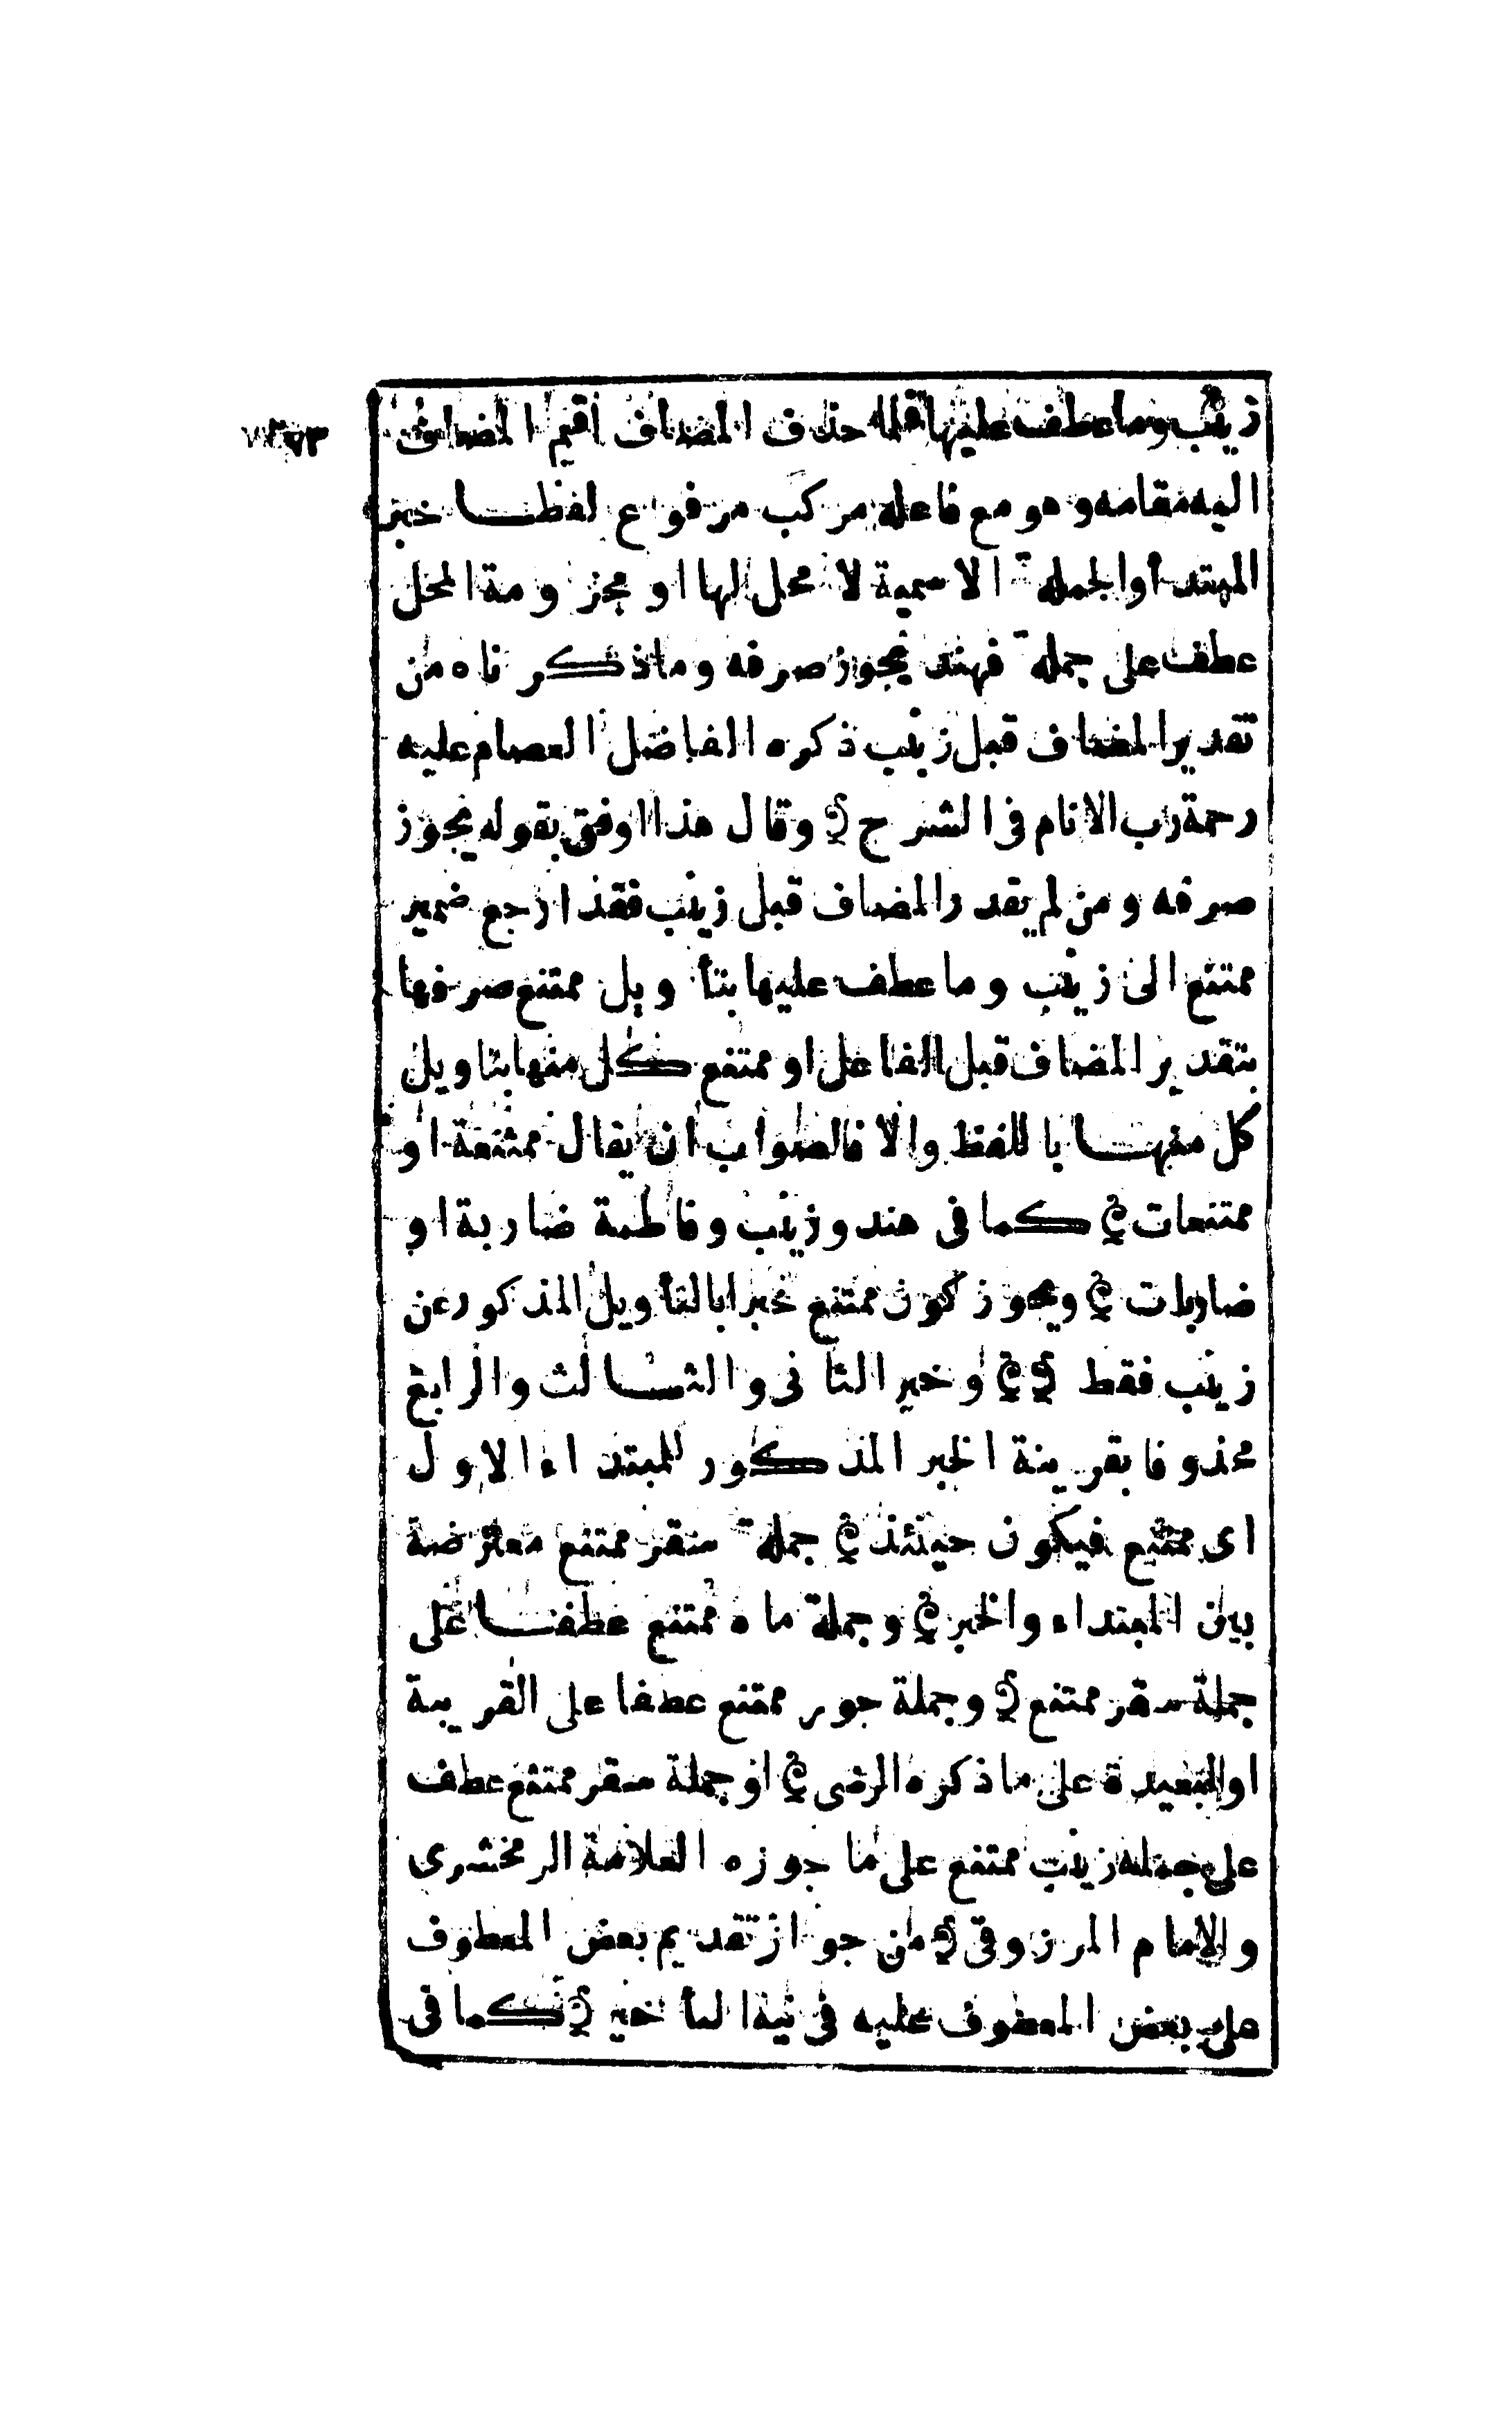 زينب وما عطف عليها فلما حذف المضاف اقيم المضاف
اليه مقامه وهو مع فاعله مركب مرفوع لفظا خبر
المبتدأ والجملة الاسمية لا محل لها او مجزومة المحل
عطف على جملة فهند يجوز صرفه وما ذكرناه من
تقدير المضاف قبل زينب ذكره الفاضل العصام عليه
رحمة رب الانام فى الشرح وقال هذا اوفق بقوله يجوز
صرفه ومن لم يقدر المضاف قبل زينب فقد ارجع ضمير
ممتنع الى زينب وما عطف عليها بتأويل ممتنع صرفها
بتقدير المضاف قبل الفاعل او ممتنع كل منها بتاويل
كل منها باللفظ والا فالصواب ان يقال ممتنعة او
ممتنعات كما فى هند وزينب وفاطمة ضاربة او
ضاربات ويجوز كون ممتنع خبرا بالتأويل المذكور عن
زينب فقط وخبر الثانى والثالث والرابع
محذوفا بقرينة الخبر المذكور للمبتداء الاول
اى ممتنع فيكون حينئذ جملة سقر ممتنع معترضة
بين المبتداء والخبر وجملة ماه ممتنع عطفا على
جملة سقر ممتنع وجملة جور ممتنع عطفا على القريبة
او البعيدة على ما ذكره الرضى او جملة سقر ممتنع عطف
على جملة زينب ممتنع على ما جوزه العلامة الزمخشرى
والامام المرزوقى من جواز تقديم بعض المعطوف
على بعض المعطوف عليه فى نية التأخير كما فى